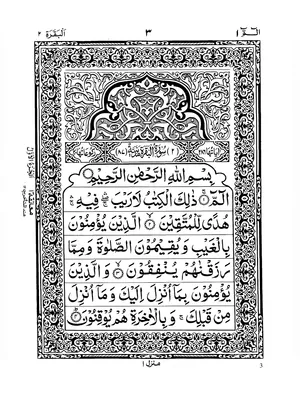 الٓمّٓ ١ ٣ اَلْبَقَرَة ٢
(٢) سُوْرَةُ الْبَقَرَةِ مَدَنِيَّةٌ (٨٧)
بِسْمِ اللّٰهِ الرَّحْمٰنِ الرَّحِيْمِ
الٓمّٓ ۚ ذٰلِكَ الْكِتٰبُ لَا رَيْبَ ۛ فِيْهِ ۛ
هُدًى لِّلْمُتَّقِيْنَ ۙ الَّذِيْنَ يُؤْمِنُوْنَ
بِالْغَيْبِ وَيُقِيْمُوْنَ الصَّلٰوةَ وَمِمَّا
رَزَقْنٰهُمْ يُنْفِقُوْنَ ۙ وَالَّذِيْنَ
يُؤْمِنُوْنَ بِمَآ اُنْزِلَ اِلَيْكَ وَمَآ اُنْزِلَ
مِنْ قَبْلِكَ ۚ وَبِالْاٰخِرَةِ هُمْ يُوْقِنُوْنَ
منزل ١
3